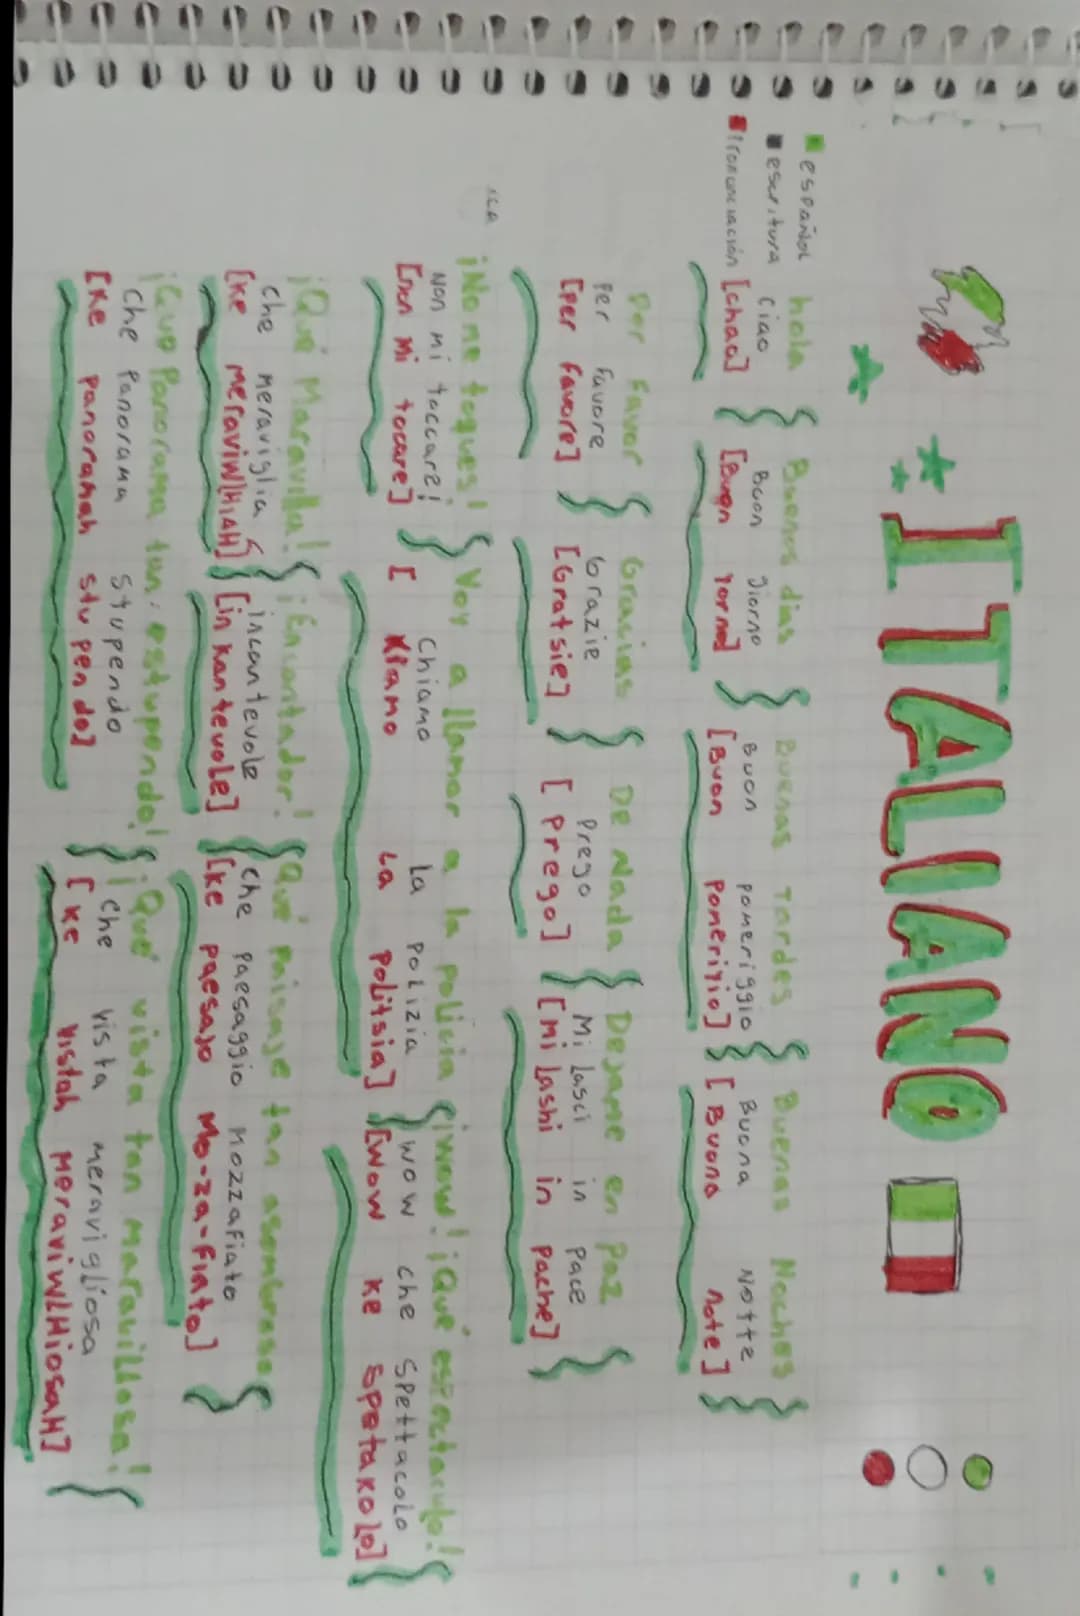 ITALIANO
español
escritura
Pronunciación
hola { Buenos dias { Buenas Tardes { Buenas Noches {
ciao Buon giorno Buon pomeriggio Buona Notte
[chao] { [Buon Yorno] { [Buon Pomeriyio] { [Buona note] {
Por Favor { Gracias { De Nada { Dejame en Paz {
Per favore Grazie Prego Mi Lasci in pace
[per favore] { [Gratsie] { [Prego] { [mi Lashi in Pache] {
¡No me toques! { Voy a llamar a la policia { ¡wow! ¡Qué espectaculo! {
Non mi toccare! Chiamo la Polizia wow che Spettacolo
[non mi tocare] { [Kiamo La Politsia] { [Wow Ke Spetakolo] {
¡Qué Maravilla! { ¡Encantador! { Qué Paisaje tan asombroso {
che meraviglia incantevole che Paesaggio mozzafiato
[Ke meraviWlHiAH] { [in Kantevole] { [Ke Paesajo Mo-za-Fiato] {
¡Que Panorama tan estupendo! { ¡Qué vista tan Maravillosa! {
Che Panorama Stupendo ¡che vista meravigliosa
[Ke panoramah stupendo] { [Ke Vistah MeraviWlHiosaH] {